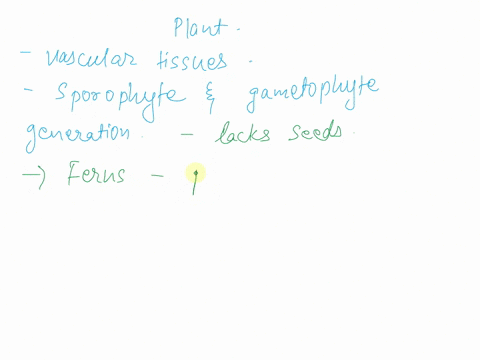 Plant.
- vascular tissues.
- Sporophyte & gametophyte
generation. - lacks seeds.
→ Ferns -